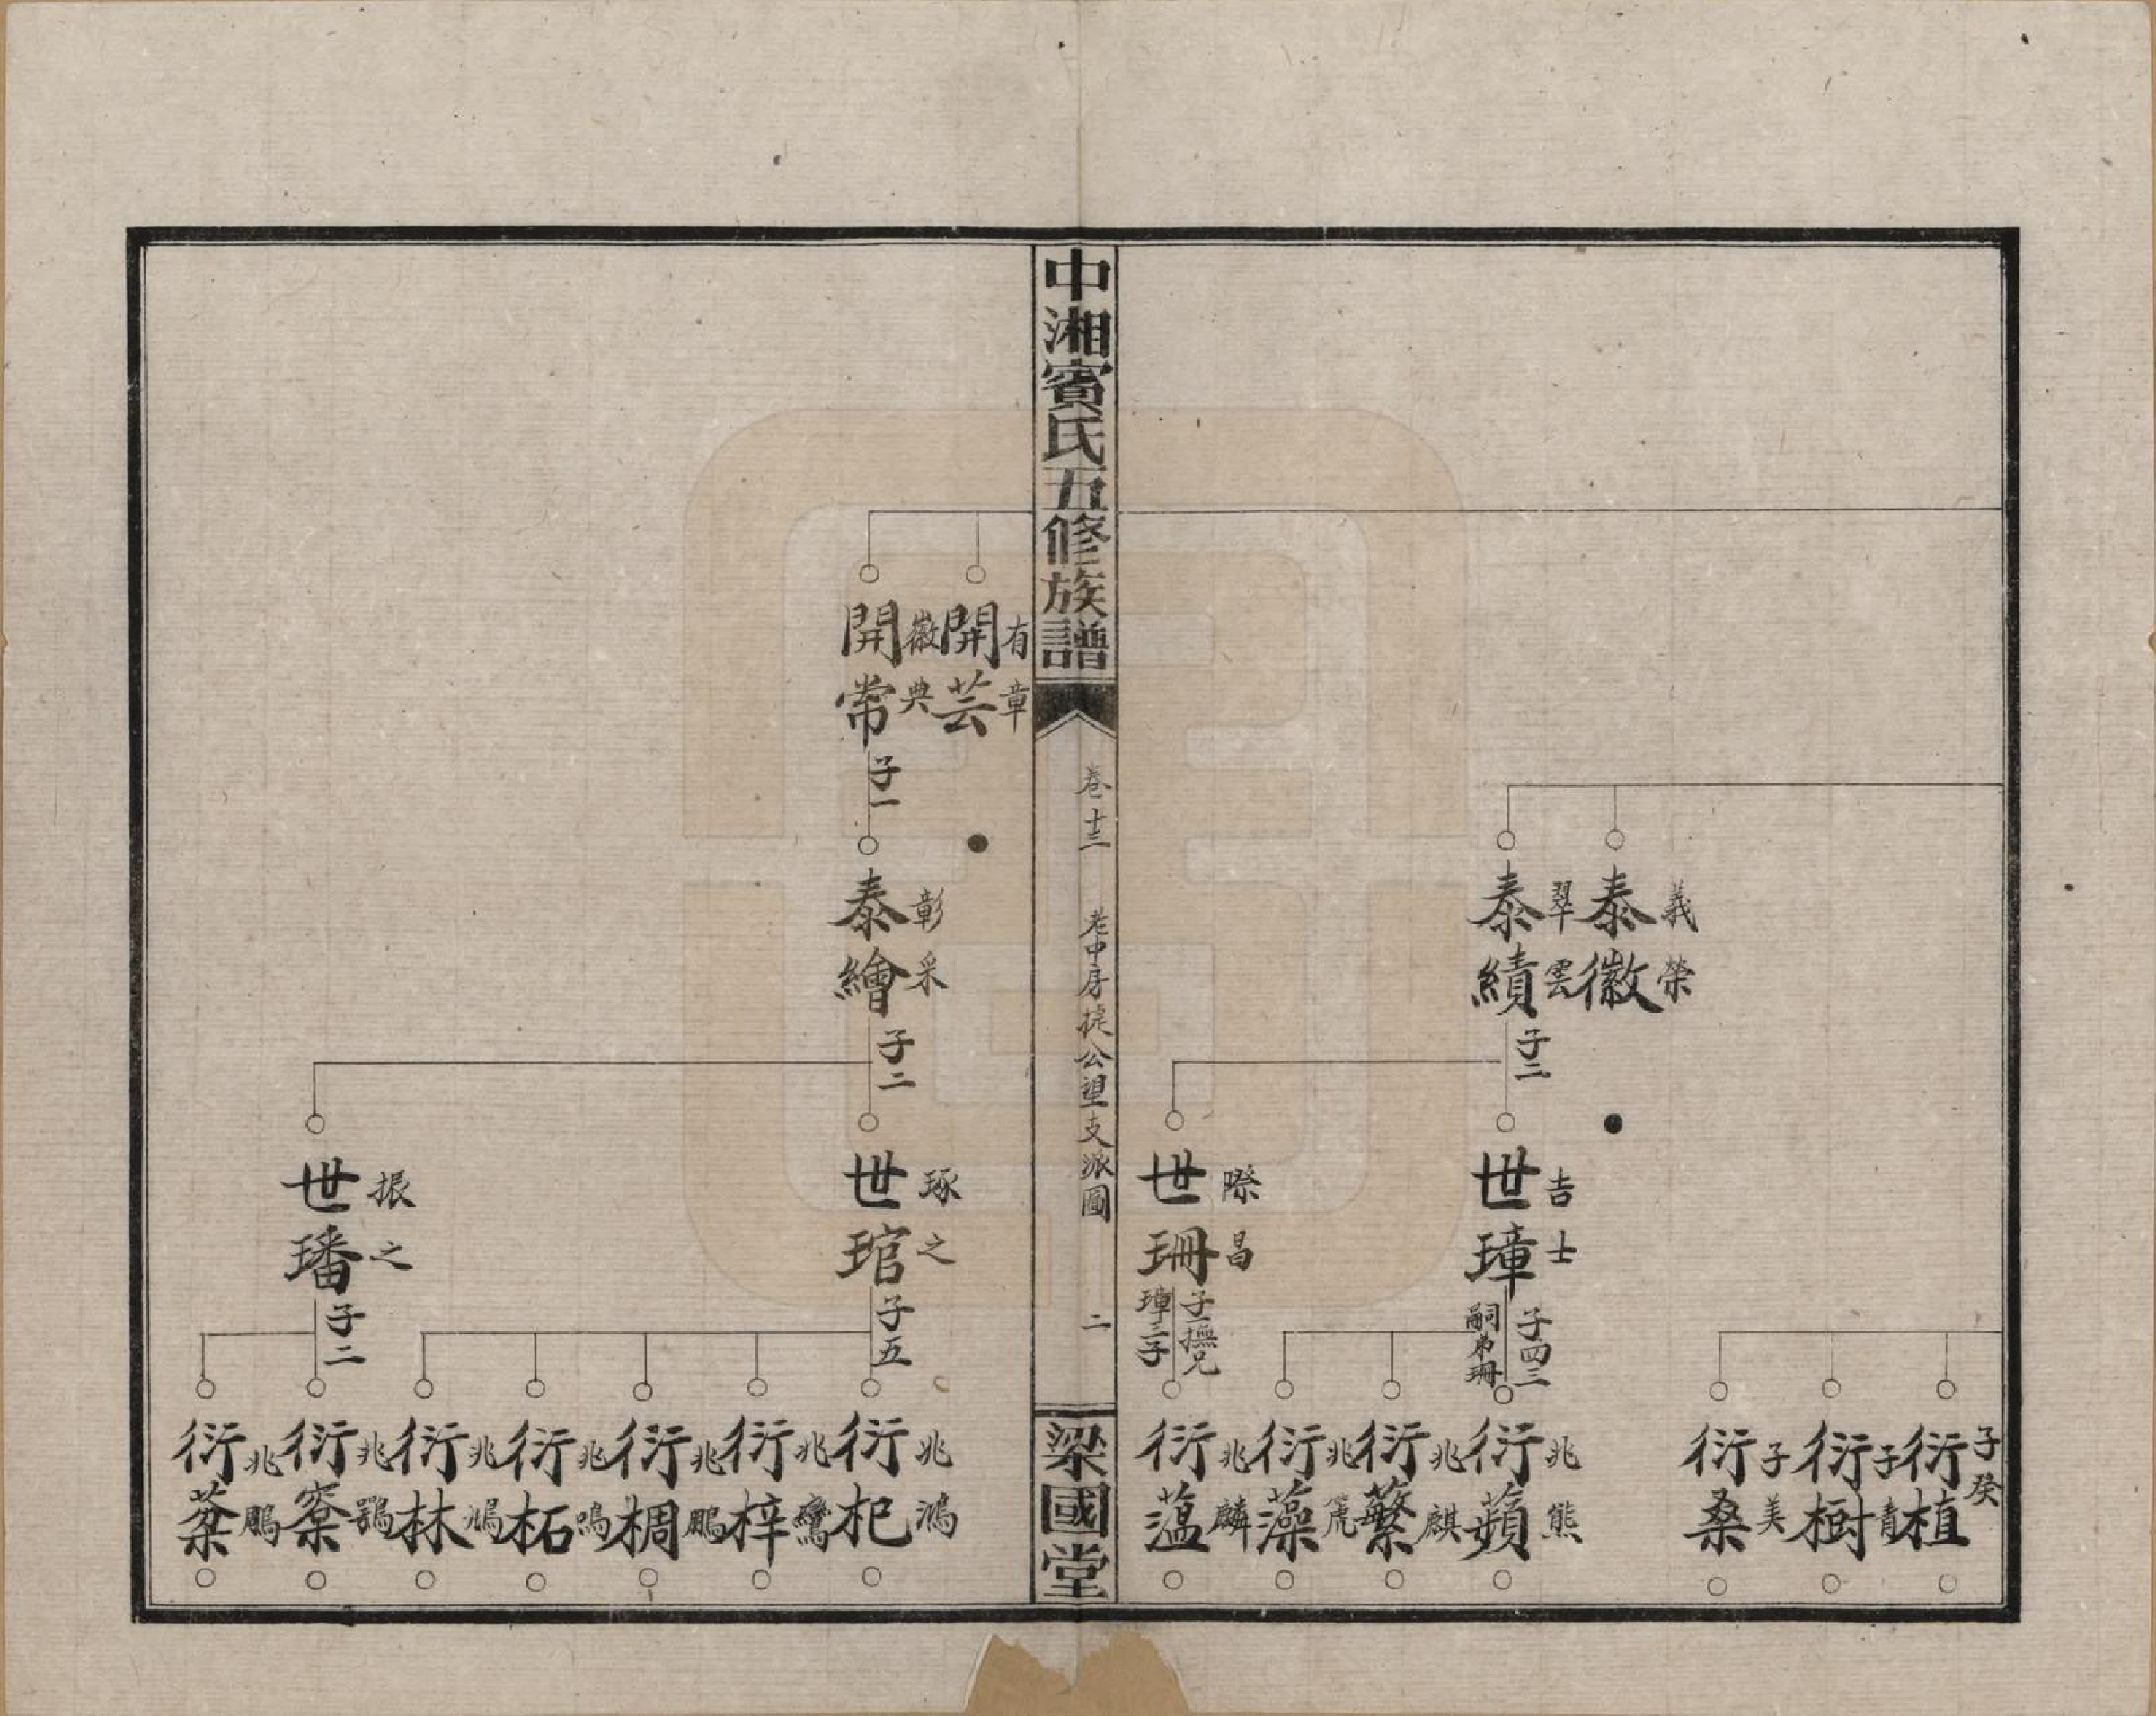 義榮
泰徽
翠雲
泰績
子二
吉士
世璋
子四三
嗣弟珊
際昌
世珊
子一撫兄
璋三子
子癸
衍植
子青
衍樹
子美
衍桑
兆熊
衍蘋
兆麒
衍蘩
兆箎
衍藻
兆麟
衍薀
中湘賓氏五修族譜
卷十三
老中房
公望支派圖
二
梁國堂
有章
開芸
徽典
開常
子一
彰采
泰繪
子二
琢之
世琯
子五
振之
世璠
子二
兆鴻
衍杞
兆鸞
衍梓
兆鵬
衍椆
兆鳴
衍柘
兆
衍林
兆鶚
衍
兆鵬
衍